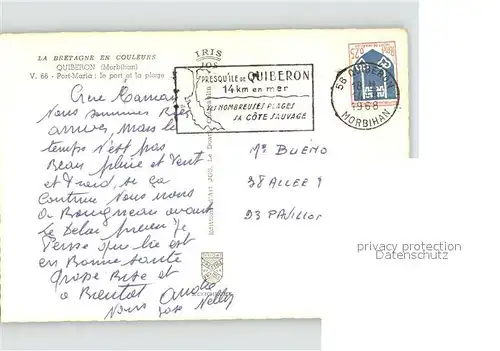 LA BRETAGNE EN COULEURS
QUIBERON (Morbihan)
V. 66 - Port-Maria : le port et la plage
IRIS
JOS
PRESQU'ILE DE QUIBERON
14 km en mer
SES NOMBREUSES PLAGES
SA CÔTE SAUVAGE
56 QUIBERON
1968
MORBIHAN
Chère Maman
Nous sommes Bien
arrivés mais le
temps n'est pas
Beau pluie et Vent
et Froid, si ça
Continue Nous irons
a avant
le Delai prevu Je
Pense que la est
en Bonne Santé
Grosse Bise et
a Bientot
Nelly
Mme BUENO
38 ALLEE
93 PAVILLON
privacy protection
© oldthing.com